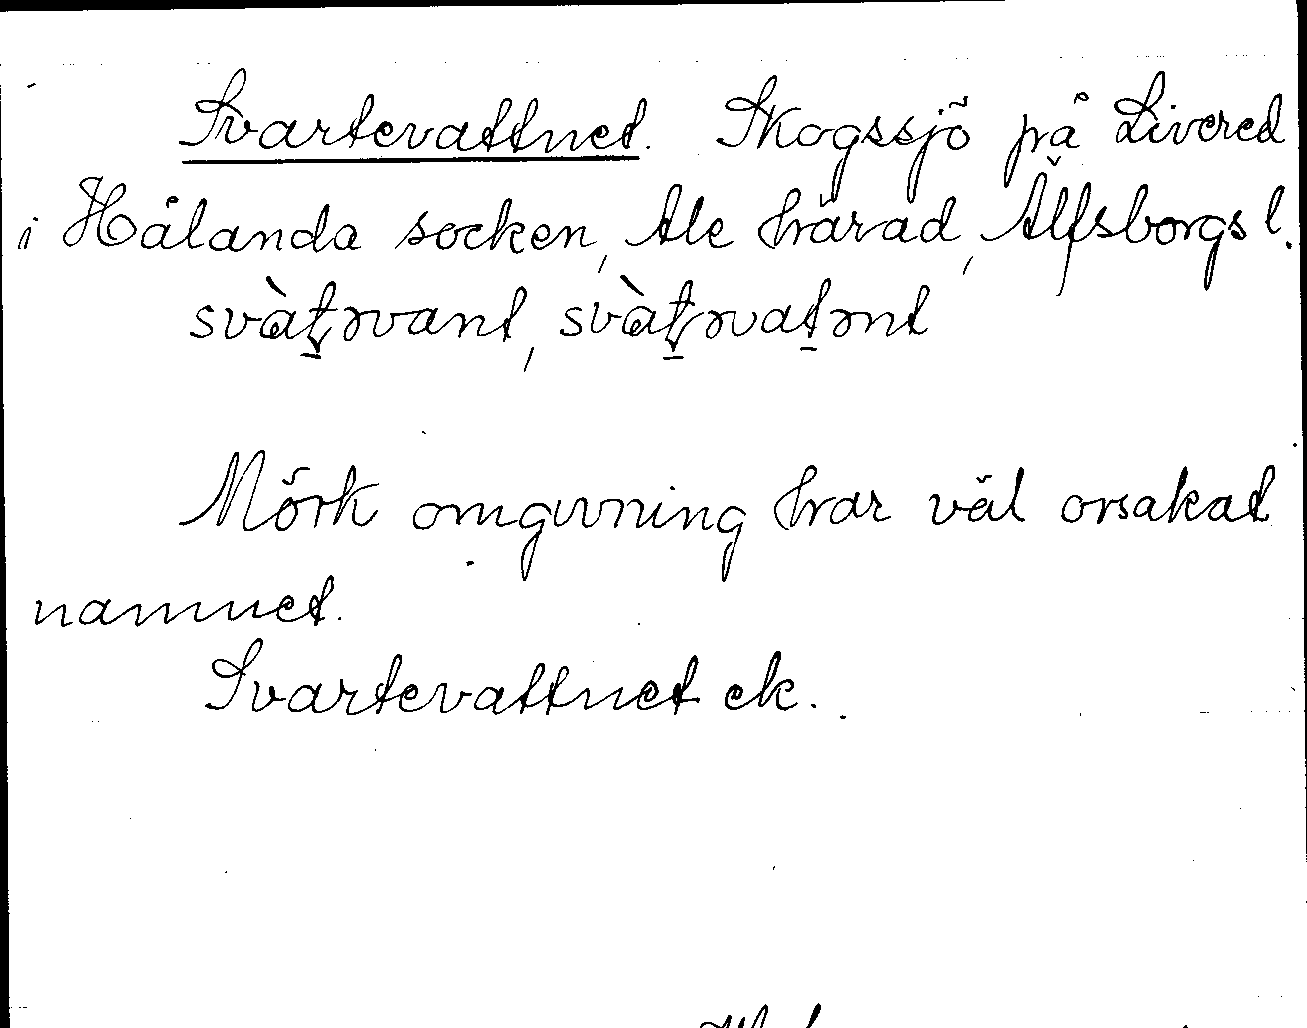 Svartevattnet. Skogssjö på Livered
i Hålanda socken, Ale härad, Älfsborgs l.
svàt̠əvant, svàt̠əvat̠ənt
Mörk omgivning har väl orsakat
namnet.
Svartevattnet ek.